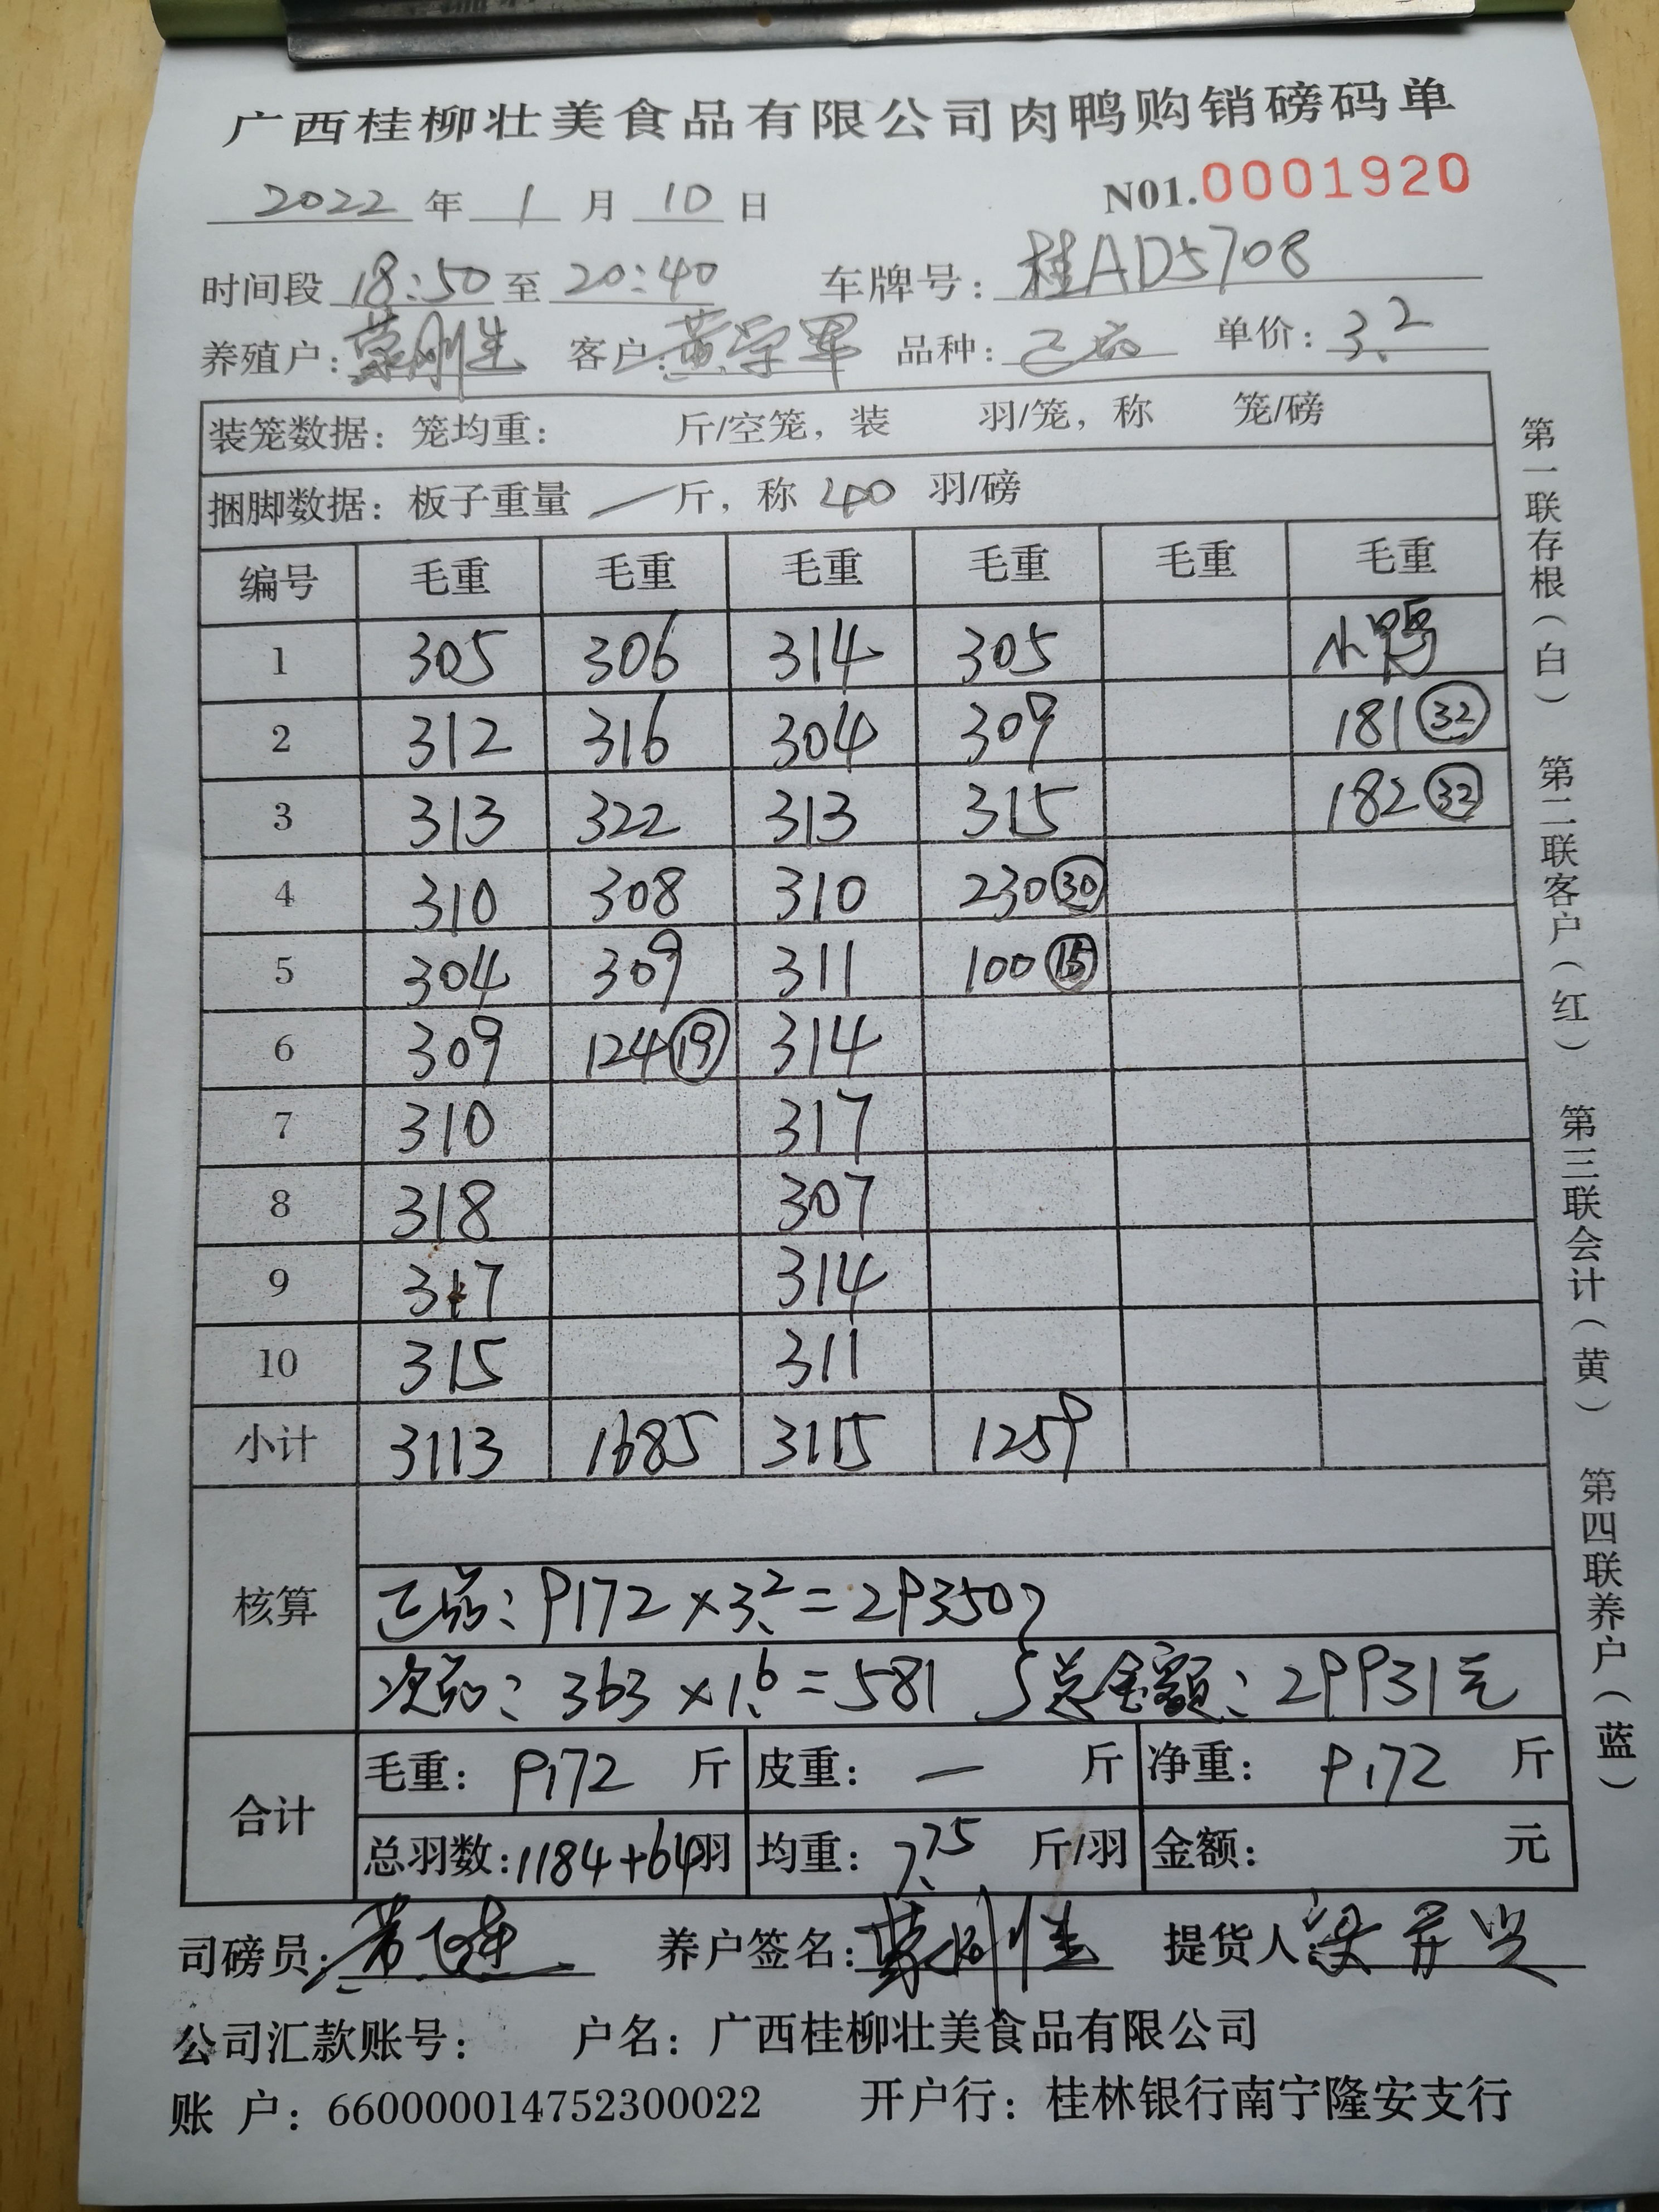 广西桂柳壮美食品有限公司肉鸭购销磅码单
2022 年 1 月 10 日 N01.0001920
时间段 18:50 至 20:40 车牌号: 桂AD5708
养殖户: 蒙刚生 客户: 黄学军 品种: 单价: 3.2
装笼数据: 笼均重: 斤/空笼, 装 羽/笼, 称 笼/磅
捆脚数据: 板子重量 一 斤, 称 40 羽/磅
编号 毛重 毛重 毛重 毛重 毛重 毛重
1 305 306 314 305 小鸭
2 312 316 304 309 181 32
3 313 322 313 315 182 32
4 310 308 310 230 30
5 304 309 311 100 15
6 309 124 19 314
7 310 317
8 318 307
9 317 314
10 315 311
小计 3113 1685 3115 1259
核算
正品: 9172×3.2=29350
次品: 363×1.6=581 总金额: 29931元
合计
毛重: 9172 斤 皮重: 一 斤 净重: 9172 斤
总羽数: 1184+64羽 均重: 7.75 斤/羽 金额: 元
司磅员: 养户签名: 提货人:
公司汇款账号: 户名: 广西桂柳壮美食品有限公司
账 户: 660000014752300022 开户行: 桂林银行南宁隆安支行
第一联存根(白) 第二联客户(红) 第三联会计(黄) 第四联养户(蓝)